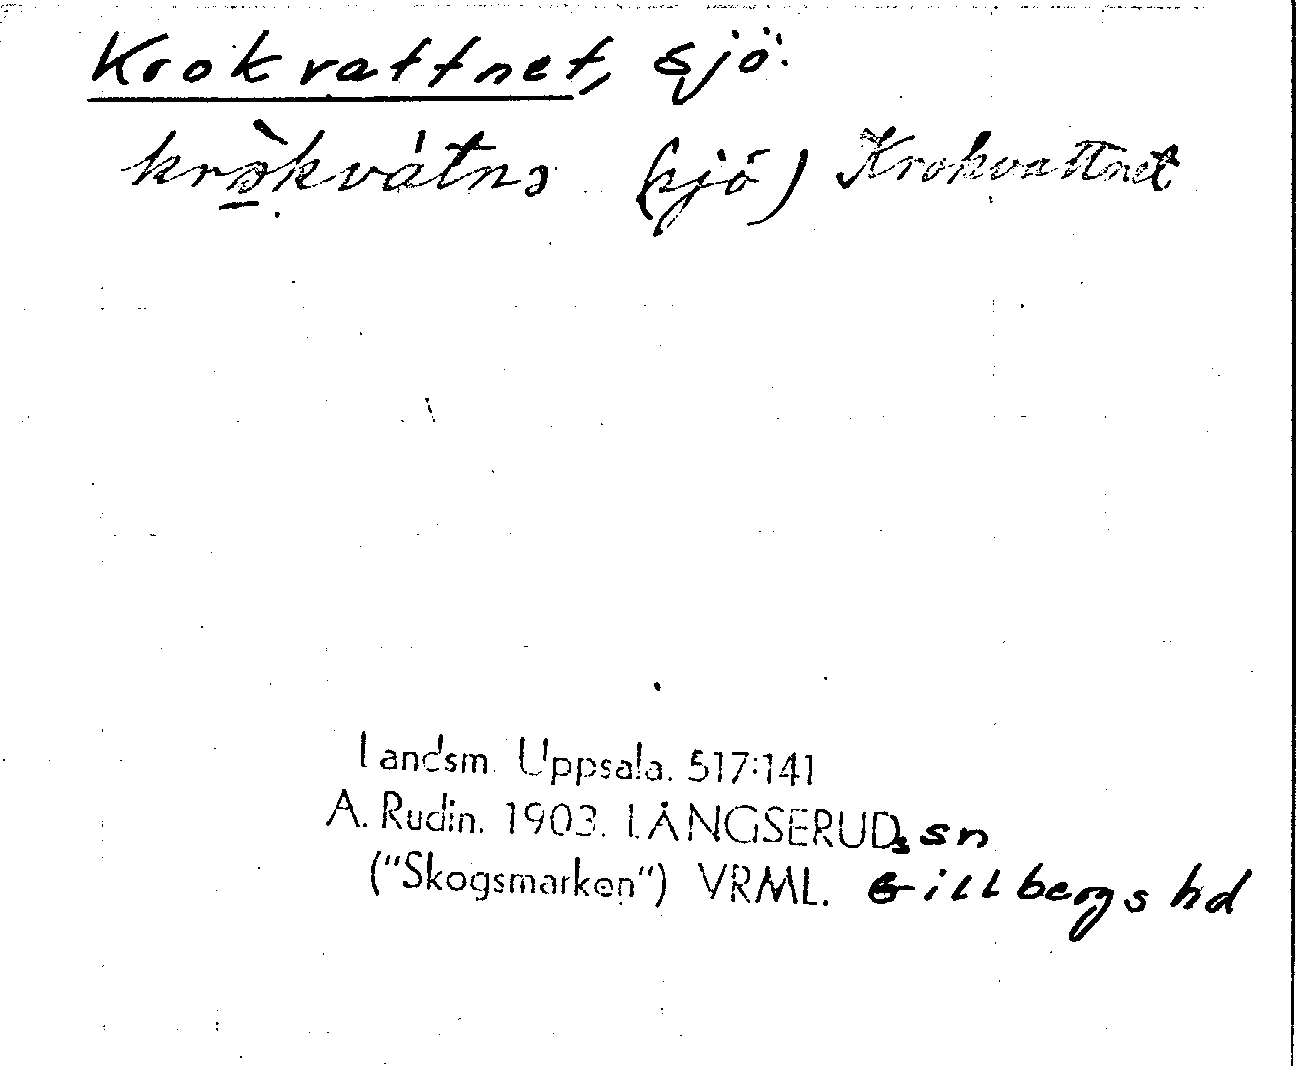 Krokvattnet, sjö.
krɔ̀kvátnə (sjö) Krokvattnet
Landsm. Uppsala. 517:141
A. Rudin. 1903. LÅNGSERUDs sn
("Skogsmarken") VRML. Gillbergs hd